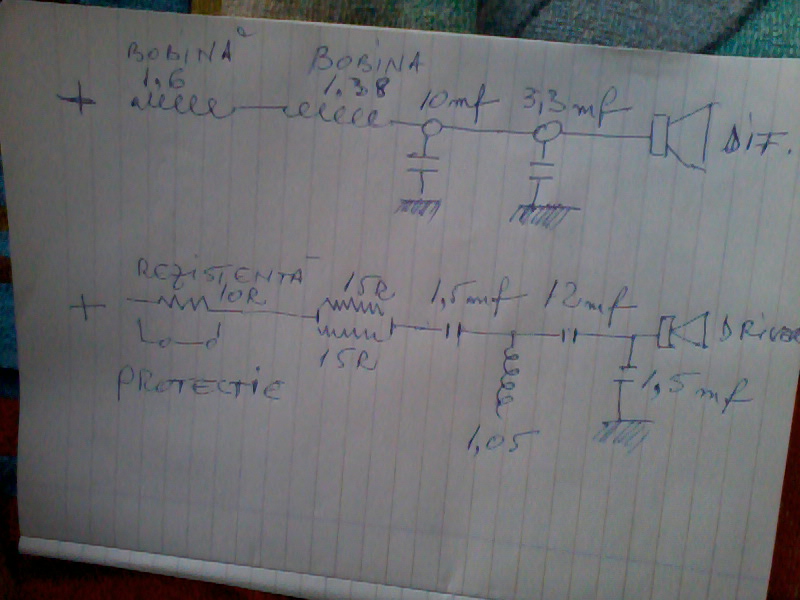 BOBINA BOBINA
1,6 1,38 10mf 3,3mf
+ DIF.
REZISTENTA 15R
10R 1,5mf 12mf
+ DRIVER
15R
PROTECTIE 1,5mf
1,05